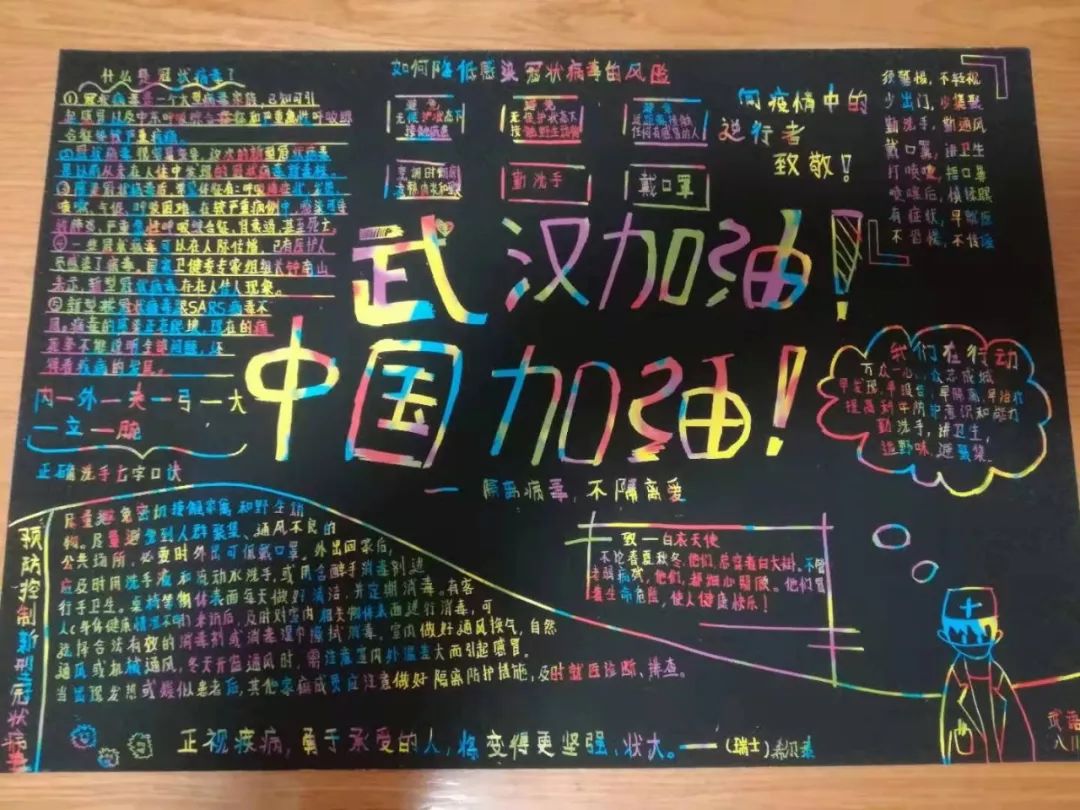 什么是冠状病毒?
①冠状病毒是一个大型病毒家族,已知可引
起感冒以及中东呼吸综合征和严重急性呼吸综
合征等较严重疾病。
是以前从未在人体中发现的冠状病毒新毒株。
咳嗽、气促、呼吸困难。在较严重病例中,感染可导
致肺炎、严重急性呼吸综合征、肾衰竭,甚至死亡。
④一些冠状病毒可以在人际传播,已有医护人
员感染了病毒。国家卫健委专家组组长钟南山
表示,新型冠状病毒存在人传人现象。
⑤新型冠状病毒跟SARS病毒不
内一外一夹一弓一大
一立一腕
正确洗手七字口诀
如何降低感染冠状病毒的风险
避免
无保护状态下
接触病患
避免
无保护状态下
接触野生动物
避免
近距离接触
任何有感冒的人
勤洗手
戴口罩
向疫情中的
逆行者
致敬!
须谨慎,不轻视
少出门,少集聚
勤洗手,勤通风
戴口罩,讲卫生
打喷嚏,捂口鼻
喷嚏后,慎揉眼
有症状,早就医
不恐慌,不传谣
武汉加油!
中国加油!
一隔离病毒,不隔离爱
我们在行动
万众一心,众志成城
早发现,早报告,早隔离,早治疗
提高利守防护意识和能力
勤洗手,讲卫生,
造野味,避聚集。
致一白衣天使
不论春夏秋冬,他们,总穿着白大褂。不管
老弱病残,他们,都细心照顾。他们冒
着生命危险,使人健康快乐!
预防控制新型冠状病毒
尽量避免密切接触家禽和野生动
物。尽量避免到人群聚集、通风不良的
公共场所,必要时外出可佩戴口罩。外出回家后,
应及时用洗手液和流动水洗手,或用含醇手消毒剂进
行手卫生。桌椅等物体表面每天做好清洁,并定期消毒。有客
人(身体健康情况不明)来访后,及时对室内相关物体表面进行消毒,可
选择合法有效的消毒剂或消毒湿巾擦拭消毒,室内做好通风换气,自然
通风或机械通风,冬天开窗通风时,需注意室内外温差大而引起感冒。
当出现发热或疑似患者后,其他家庭成员应注意做好隔离防护措施,及时就医诊断、排查。
正视疾病,勇于承受的人,将变得更坚强,状大。——(瑞士)希尔泰